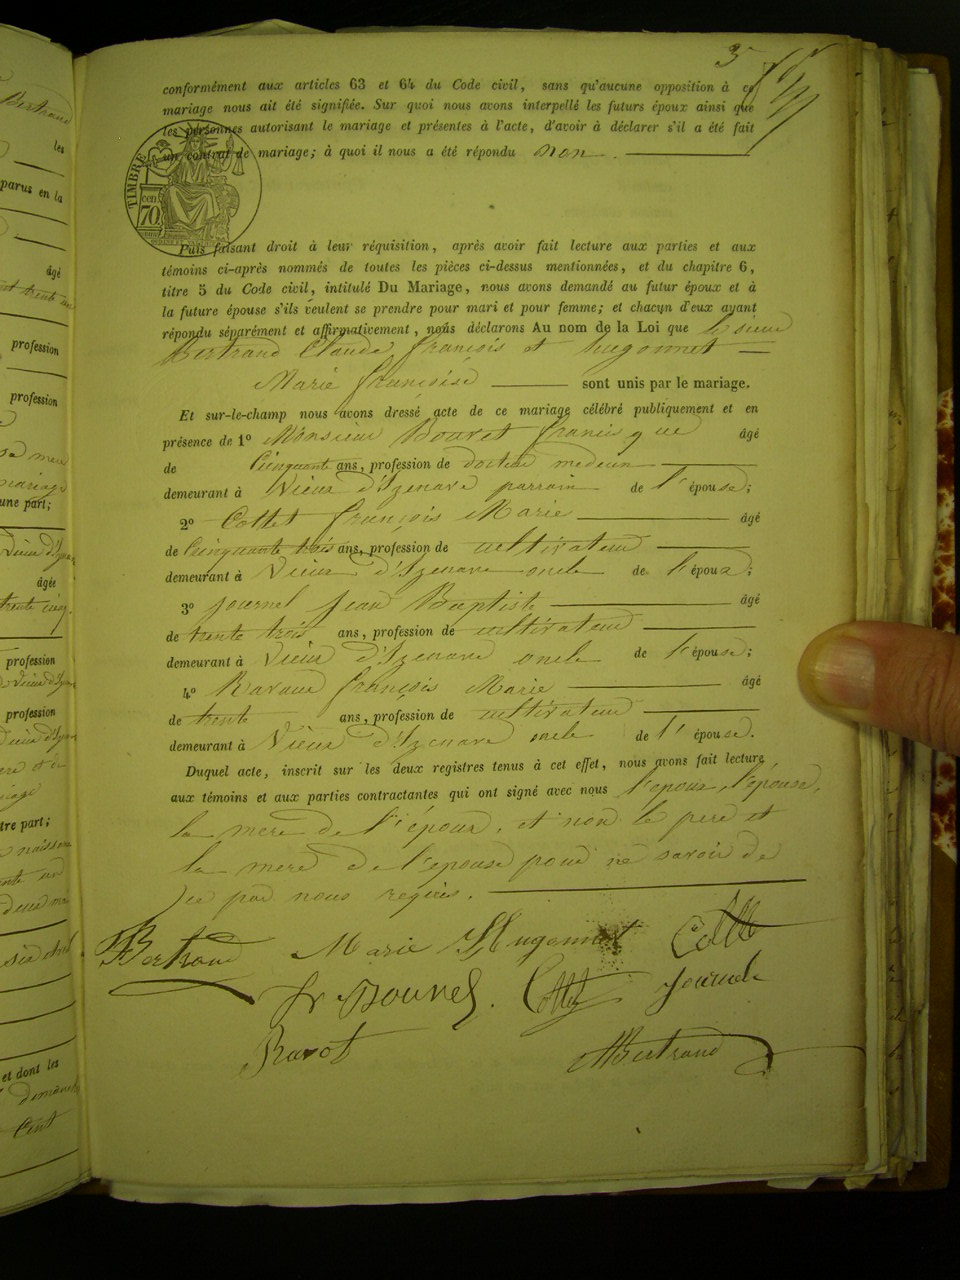 3
conformément aux articles 63 et 64 du Code civil, sans qu'aucune opposition à ce
mariage nous ait été signifiée. Sur quoi nous avons interpellé les futurs époux ainsi que
les personnes autorisant le mariage et présentes à l'acte, d'avoir à déclarer s'il a été fait
un contrat de mariage; à quoi il nous a été répondu non.
TIMBRE
cen
70
Puis faisant droit à leur réquisition, après avoir fait lecture aux parties et aux
témoins ci-après nommés de toutes les pièces ci-dessus mentionnées, et du chapitre 6,
titre 5 du Code civil, intitulé Du Mariage, nous avons demandé au futur époux et à
la future épouse s'ils veulent se prendre pour mari et pour femme; et chacun d'eux ayant
répondu séparément et affirmativement, nous déclarons Au nom de la Loi que le sieur
Bertrand Claude françois et hugonnet
Marie françoise sont unis par le mariage.
Et sur-le-champ nous avons dressé acte de ce mariage célébré publiquement et en
présence de 1º Monsieur Bouvet francisque âgé
de Cinquante ans, profession de docteur medecin
demeurant à Vieux d'Izenave parrain de l'épouse;
2º Collet françois Marie âgé
de Cinquante trois ans, profession de cultivateur
demeurant à Vieux d'Izenave oncle de l'époux;
3º journel jean Baptiste âgé
de trente trois ans, profession de cultivateur
demeurant à Vieux d'Izenave oncle de l'épouse;
4º françois Marie âgé
de trente ans, profession de cultivateur
demeurant à Vieux d'Izenave oncle de l'épouse.
Duquel acte, inscrit sur les deux registres tenus à cet effet, nous avons fait lecture
aux témoins et aux parties contractantes qui ont signé avec nous l'époux, l'épouse,
la mere de l'époux, et non le pere et
la mere de l'épouse pour ne savoir de
ce par nous requis.
Bertrand Marie Hugonnet Collet
fr Bouvet. journel
Ravot Bertrand
Bertrand
les
parus en la
âgé
profession
profession
mariage
une part;
âgée
trente cinq.
profession
profession
tre part;
et dont les
Cent